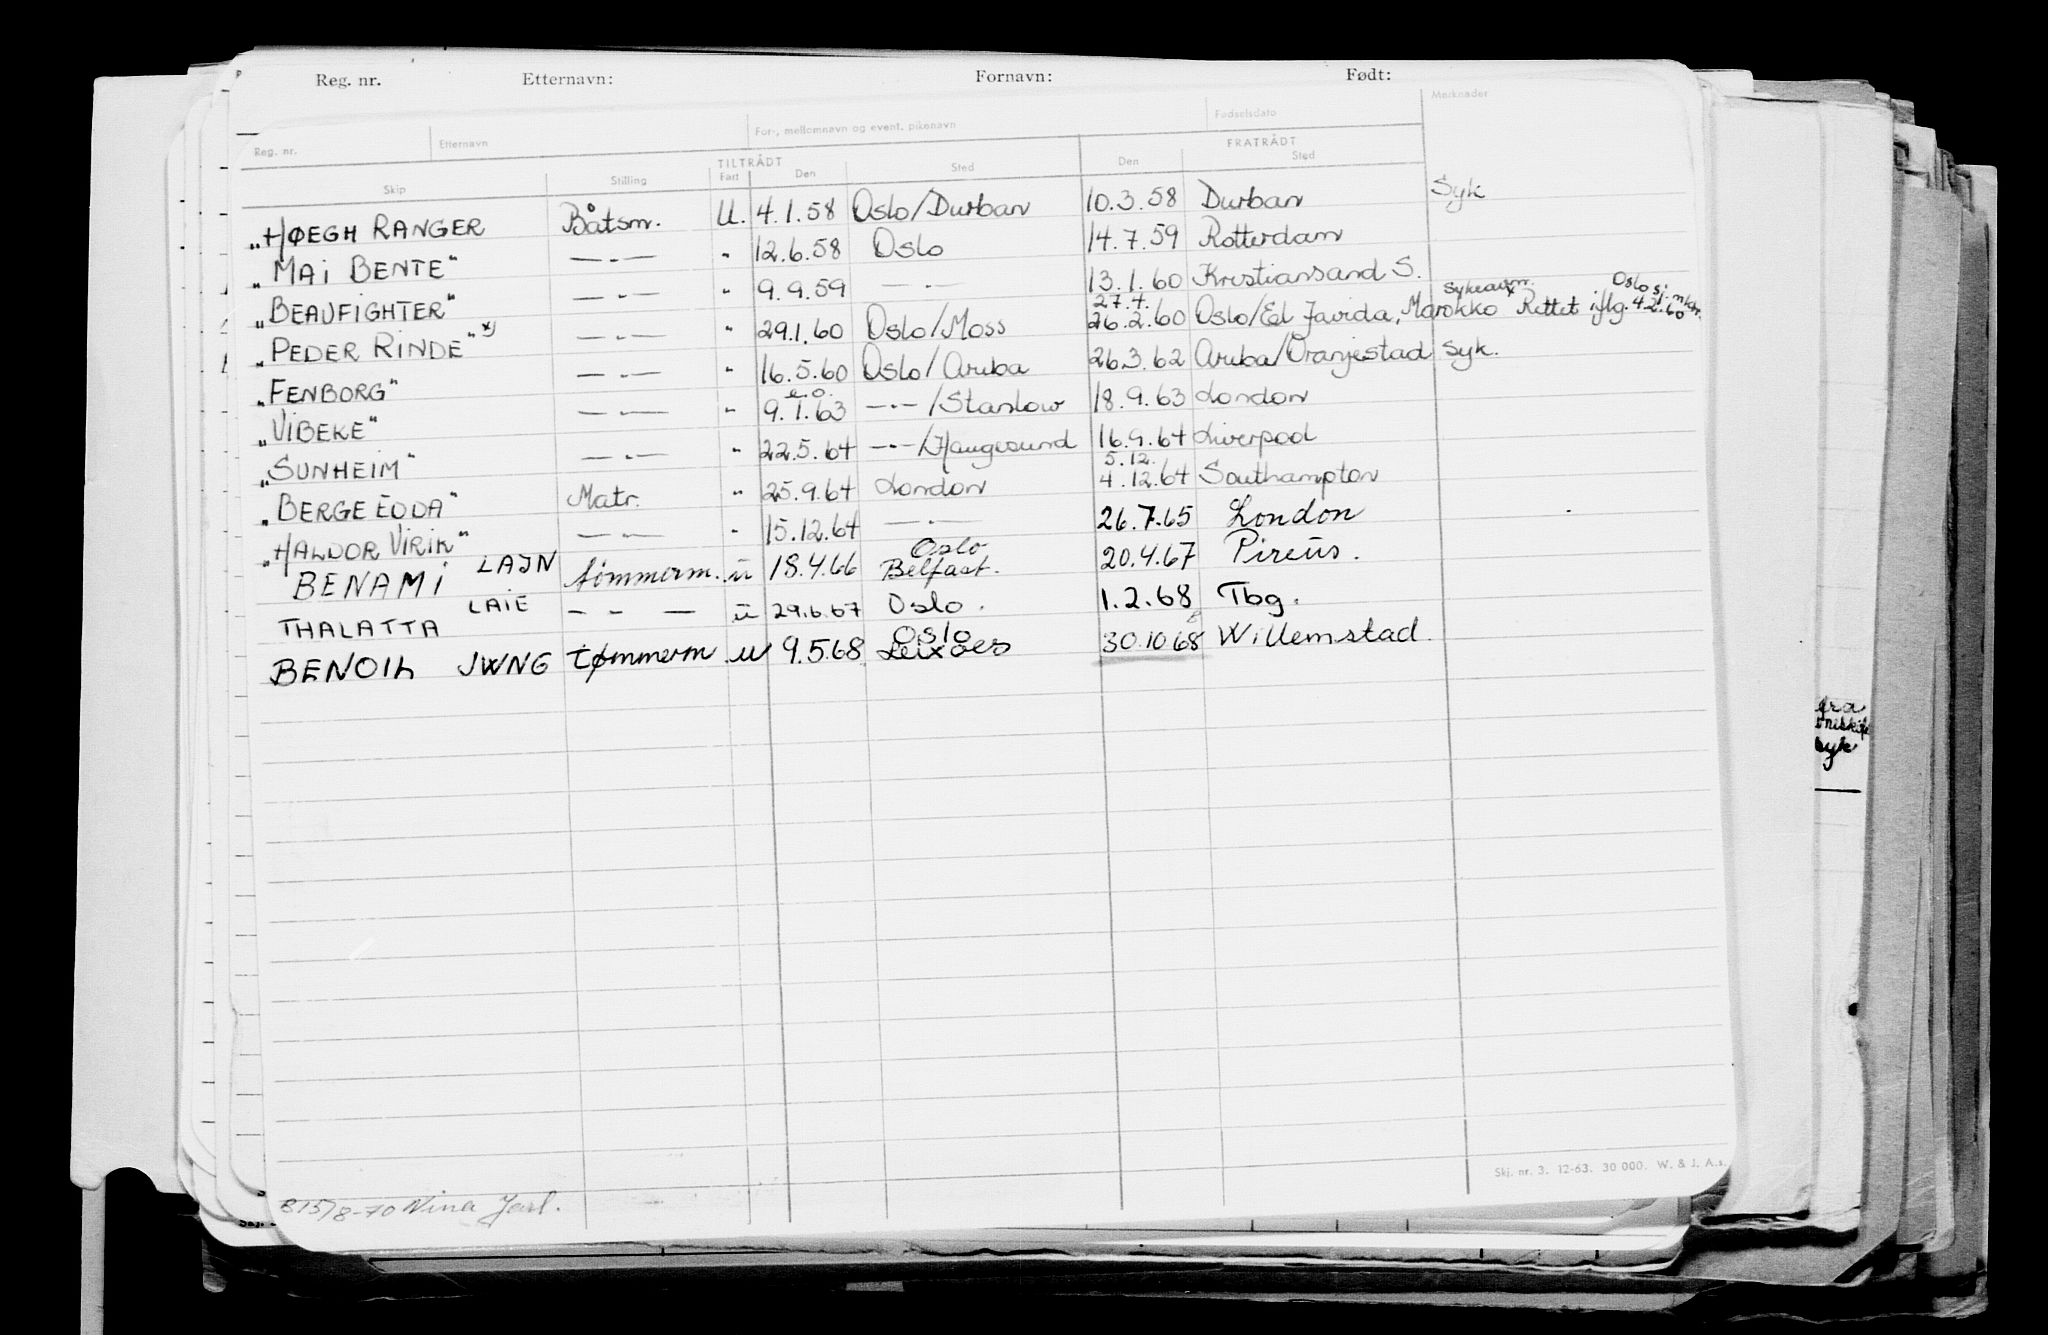 Reg. nr. Etternavn: Fornavn: Født:
Reg. nr. Etternavn For-, mellomnavn og event. pikenavn Fødselsdato Merknader
TILTRÅDT FRATRÅDT
Skip Stilling Fart Den Sted Den Sted
„HØEGH RANGER Båtsm. U. 4.1.58 Oslo/Durban 10.3.58 Durban Syk
„MAI BENTE" —"— " 12.6.58 Oslo 14.7.59 Rotterdam
„BEAUFIGHTER" —"— " 9.9.59 —"— 13.1.60 Kristiansand S.
27.4. Sykeavm. Oslo sj.mktr.
„PEDER RINDE" x) —"— " 29.1.60 Oslo/Moss 26.2.60 Oslo/El Javida, Marokko x Rettet iflg. 4.2.60
„FENBORG" —"— " 16.5.60 Oslo/Aruba 26.3.62 Aruba/Oranjestad Syk.
e.o.
„VIBEKE" —"— " 9.1.63 —"—/Stanlow 18.9.63 London
„SUNHEIM" —"— " 22.5.64 —"—/Haugesund 16.9.64 Liverpool
5.12.
„BERGE EDDA" Matr. " 25.9.64 London 4.12.64 Southampton
„HALDOR VIRIK" —"— " 15.12.64 —"— 26.7.65 London
Oslo
BENAMI LAJN tømmerm. u 18.4.66 Belfast. 20.4.67 Pireus.
THALATTA LAIE — - — u 29.6.67 Oslo. 1.2.68 Tbg.
Oslo
BENOIL JWNG tømmerm u 9.5.68 Leixoes 30.10.68 Willemstad.
fra
syk
Skj. nr. 3. 12-63. 30 000. W. & J. A.s.
815/8-70 Nina Jarl.